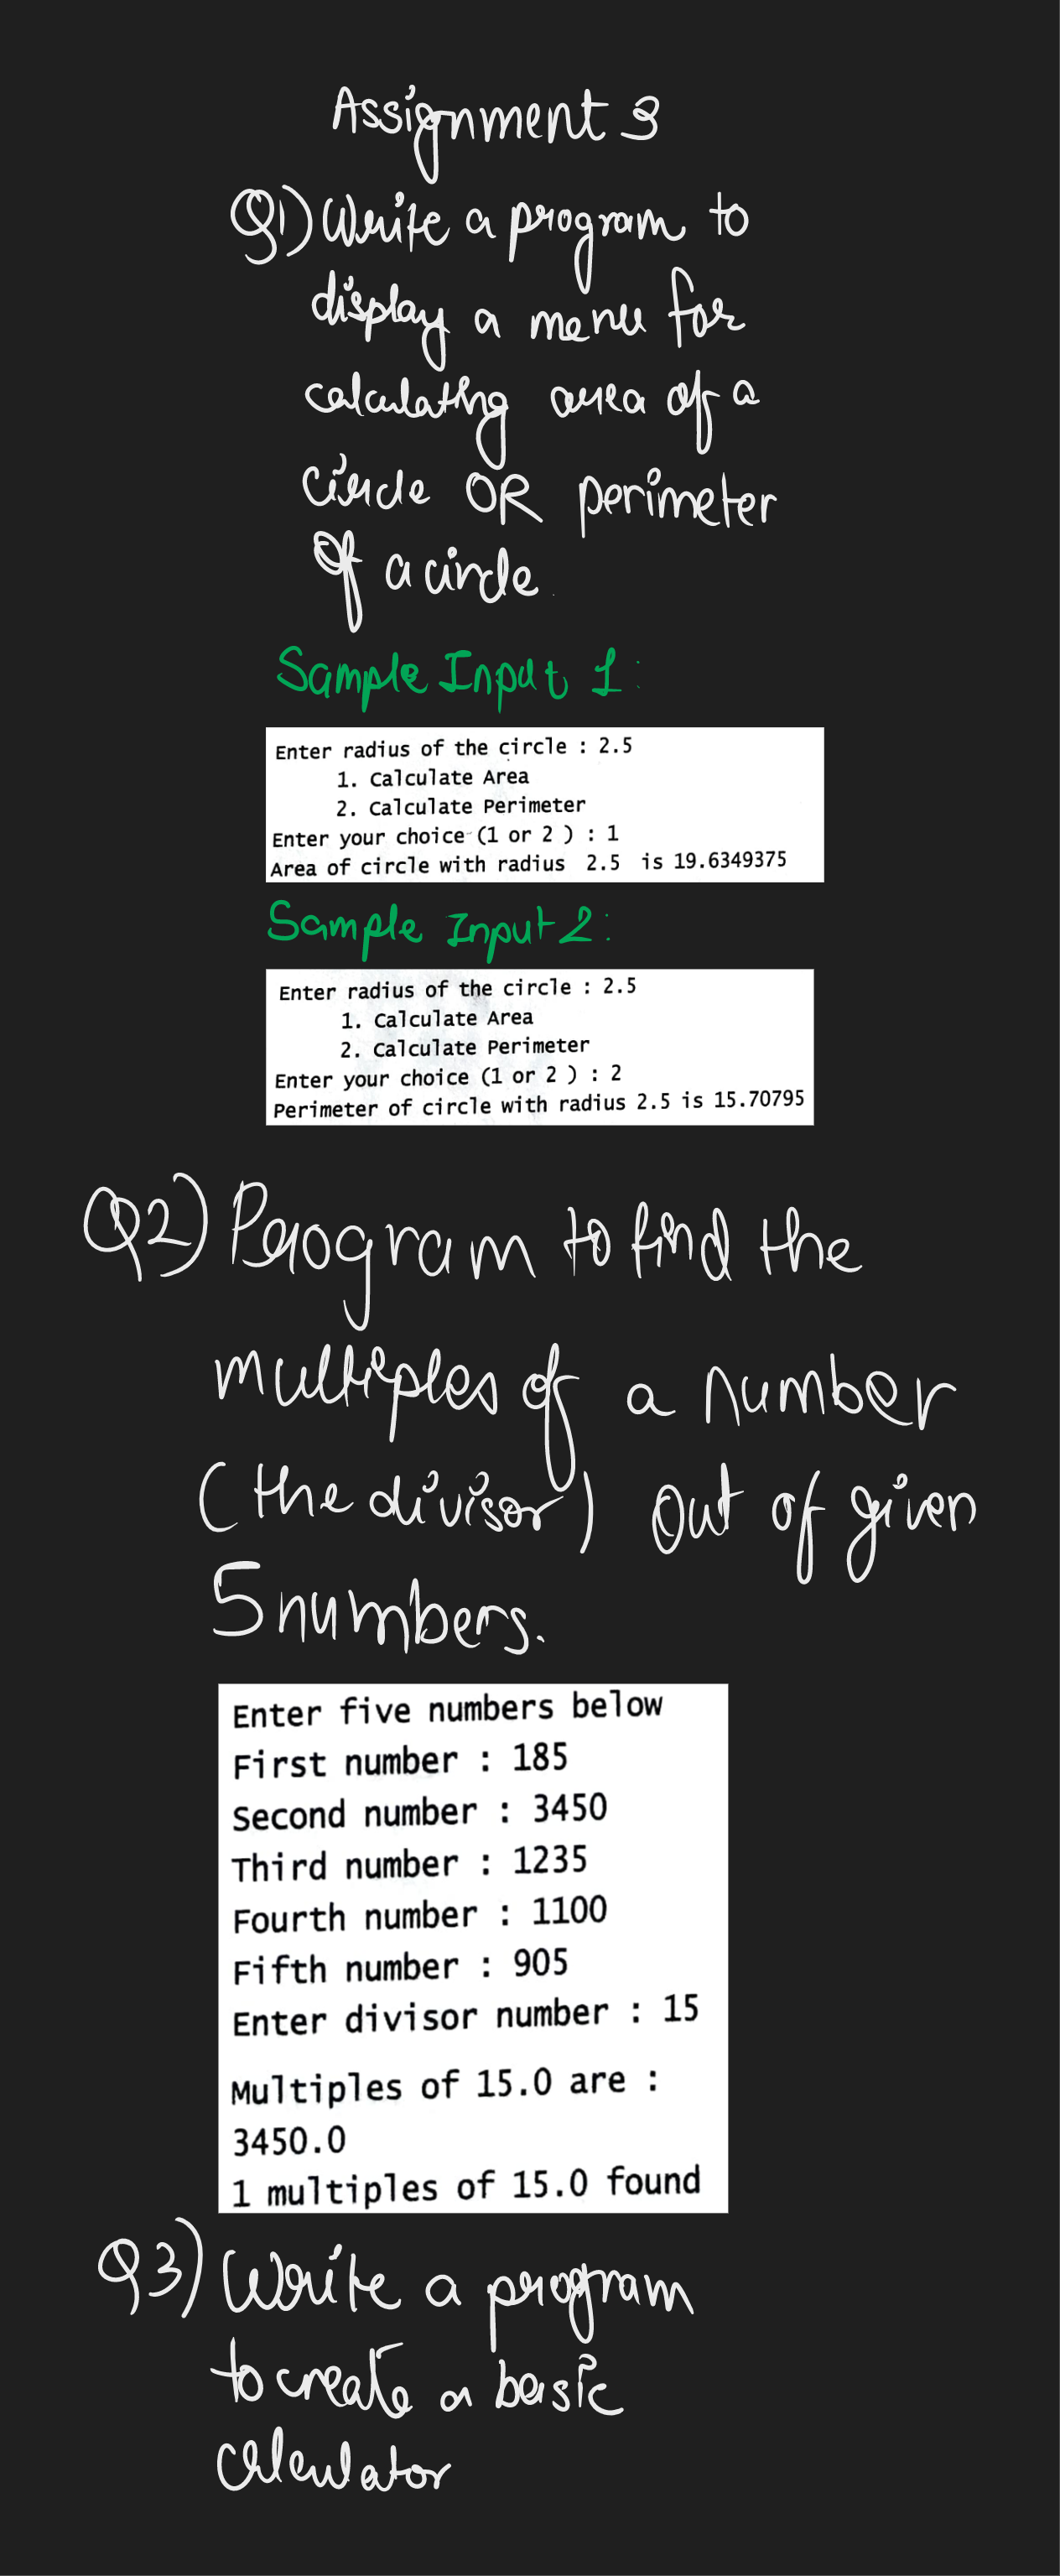 Assignment 3
Q1) Write a program to
display a menu for
calculating area of a
circle OR perimeter
of a circle.
Sample Input 1:
Enter radius of the circle : 2.5
1. Calculate Area
2. Calculate Perimeter
Enter your choice (1 or 2 ) : 1
Area of circle with radius 2.5 is 19.6349375
Sample Input 2:
Enter radius of the circle : 2.5
1. Calculate Area
2. Calculate Perimeter
Enter your choice (1 or 2 ) : 2
Perimeter of circle with radius 2.5 is 15.70795
Q2) Program to find the
multiples of a number
(the divisor) out of given
5 numbers.
Enter five numbers below
First number : 185
Second number : 3450
Third number : 1235
Fourth number : 1100
Fifth number : 905
Enter divisor number : 15
Multiples of 15.0 are :
3450.0
1 multiples of 15.0 found
Q3) Write a program
to create a basic
calculator